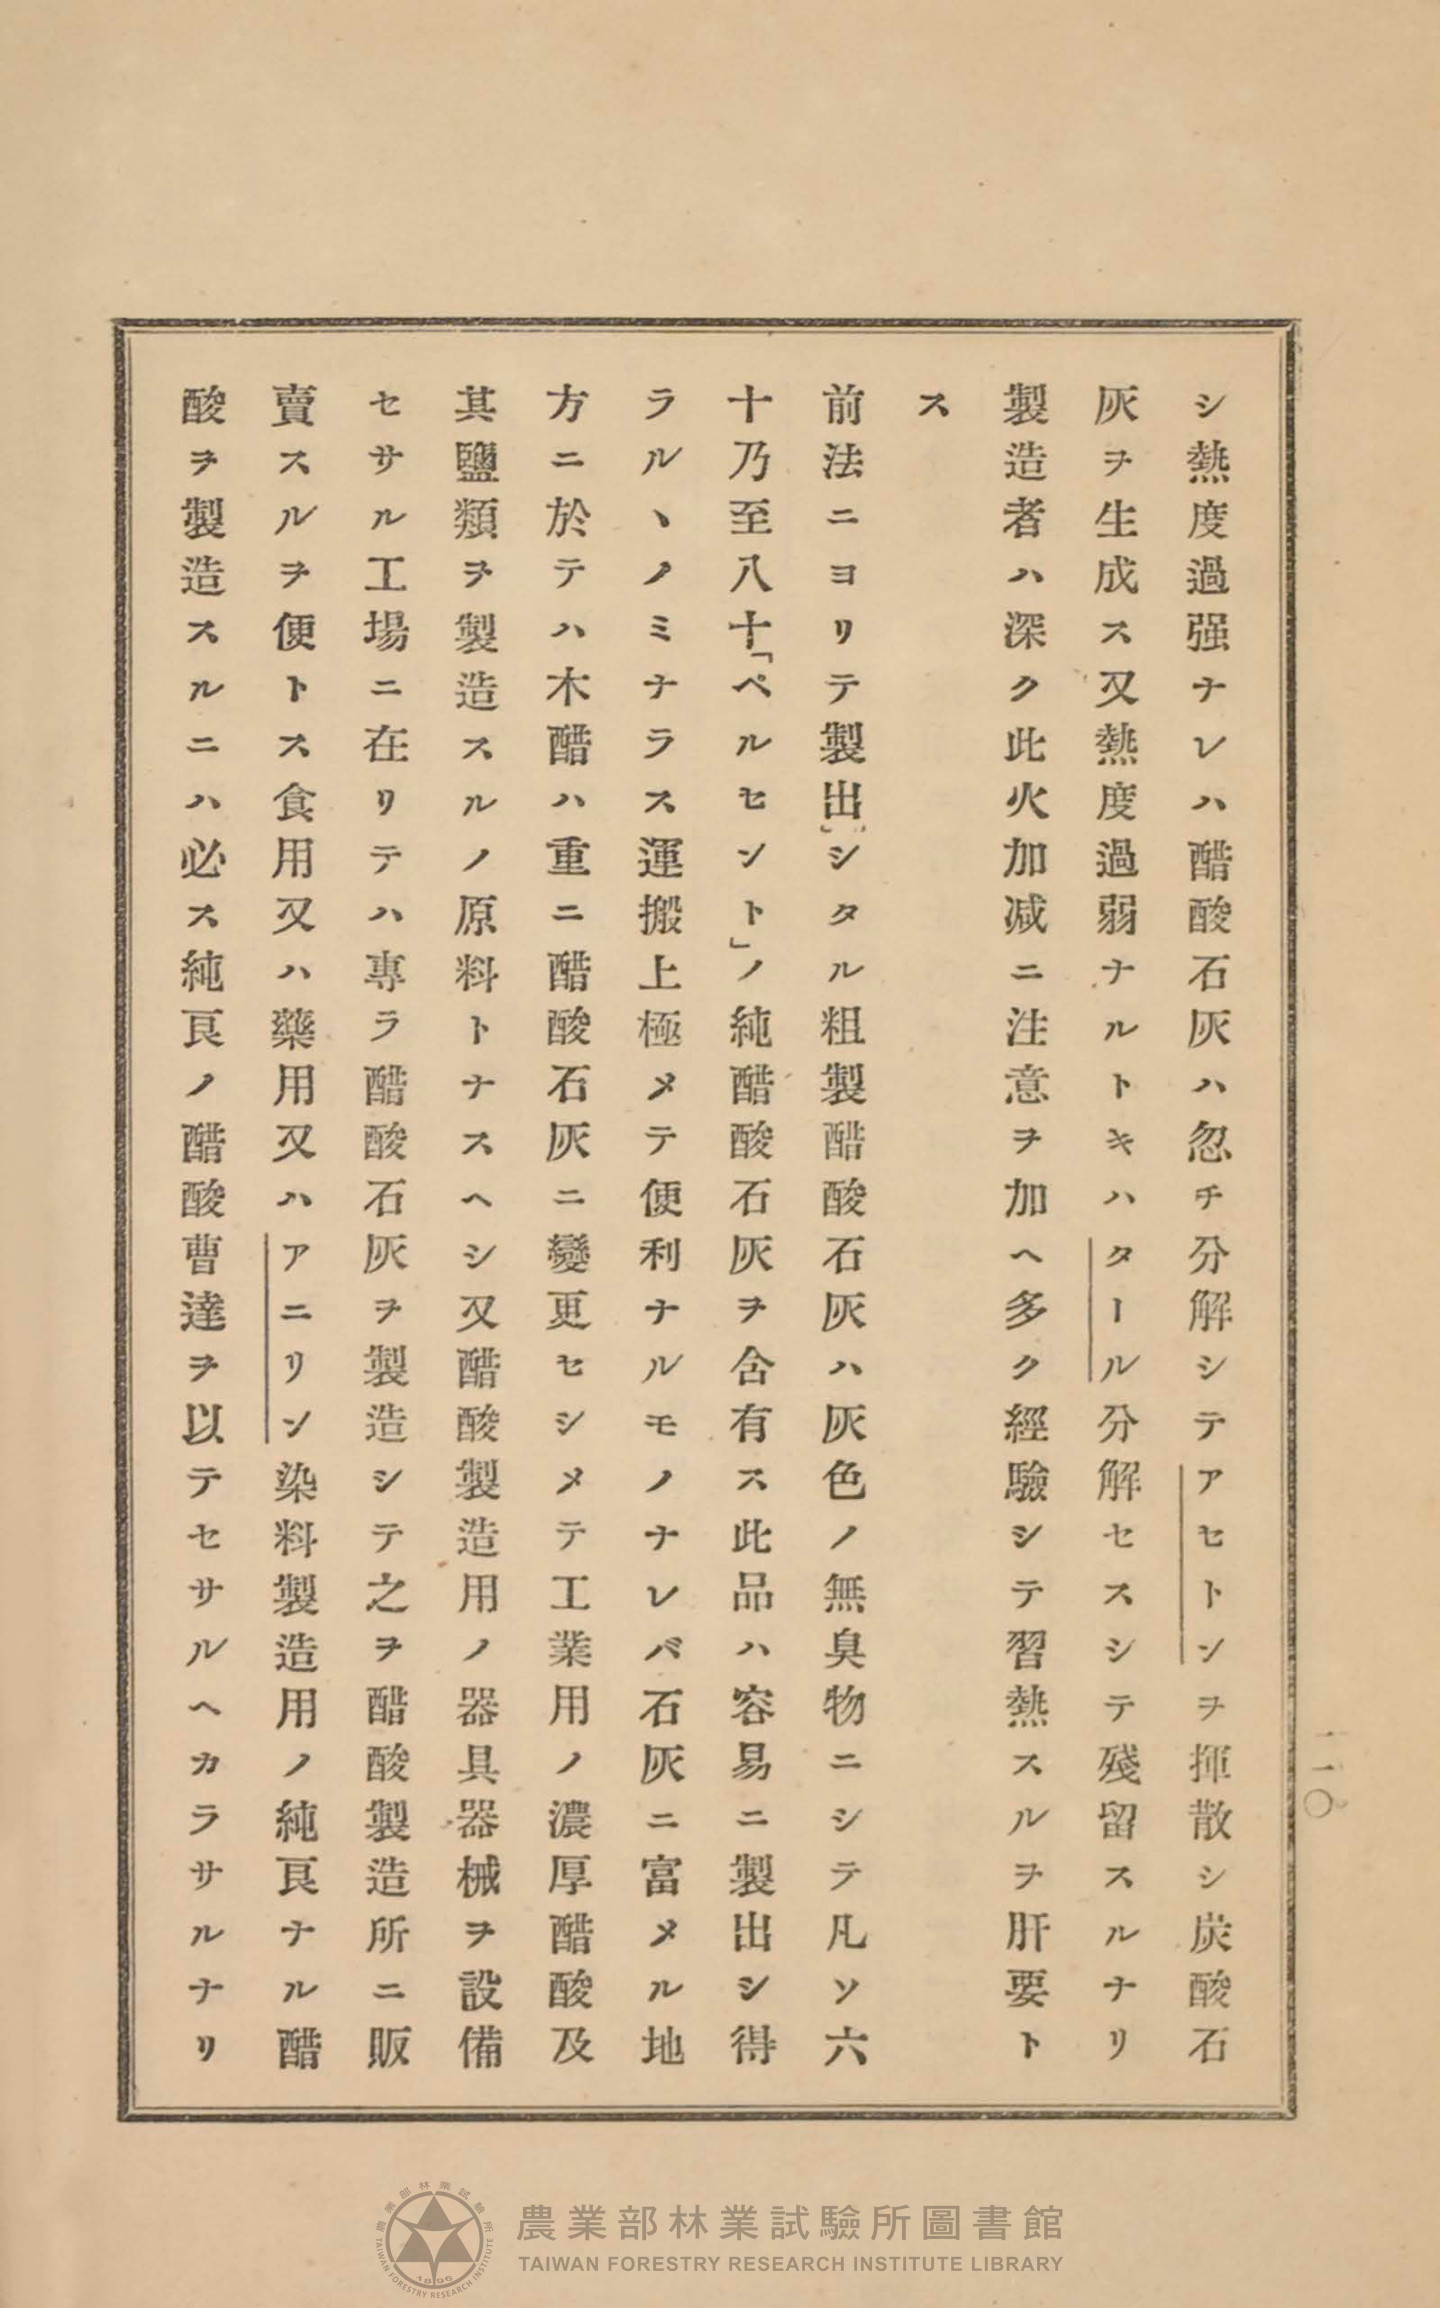 シ熱度過强ナレハ醋酸石灰ハ忽チ分解シテアセトンヲ揮散シ炭酸石
灰ヲ生成ス又熱度過弱ナルトキハタール分解セスシテ殘留スルナリ
製造者ハ深ク此火加减ニ注意ヲ加ヘ多ク經驗シテ習熱スルヲ肝要ト
ス
前法ニヨリテ製出シタル粗製醋酸石灰ハ灰色ノ無臭物ニシテ凡ソ六
十乃至八十「ペルセント」ノ純醋酸石灰ヲ含有ス此品ハ容易ニ製出シ得
ラルヽノミナラス運搬上極メテ便利ナルモノナレバ石灰ニ富メル地
方ニ於テハ木醋ハ重ニ醋酸石灰ニ變更セシメテ工業用ノ濃厚醋酸及
其鹽類ヲ製造スルノ原料トナスヘシ又醋酸製造用ノ器具器械ヲ設備
セサル工場ニ在リテハ專ラ醋酸石灰ヲ製造シテ之ヲ醋酸製造所ニ販
賣スルヲ便トス食用又ハ藥用又ハアニリン染料製造用ノ純良ナル醋
酸ヲ製造スルニハ必ス純良ノ醋酸曹達ヲ以テセサルヘカラサルナリ
一一〇
農業部林業試驗所圖書館
TAIWAN FORESTRY RESEARCH INSTITUTE LIBRARY
農業部林業試驗所
TAIWAN FORESTRY RESEARCH INSTITUTE
1896